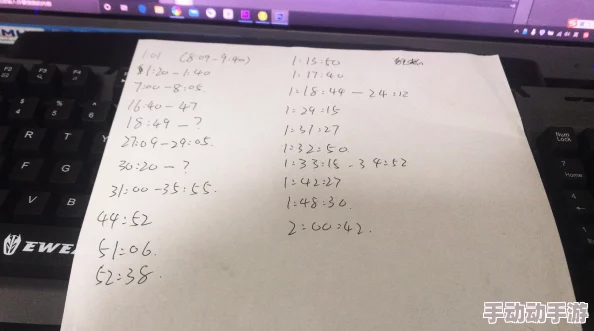 1:01 (8:09-9:40)
1:20-1:40
7:00-8:05
16:40-47
18:49-?
27:09-29:05.
30:20-?
31:00-35:55.
44:52
51:06.
52:38.
1:15:50
1:17:40
1:18:44-24:12
1:29:15
1:31:27
1:32:50.
1:33:15-34:52
1:42:27
1:48:30.
2:00:42.
Num Lock
Home
R
T
F
G
V
B
EWE
手动动手游